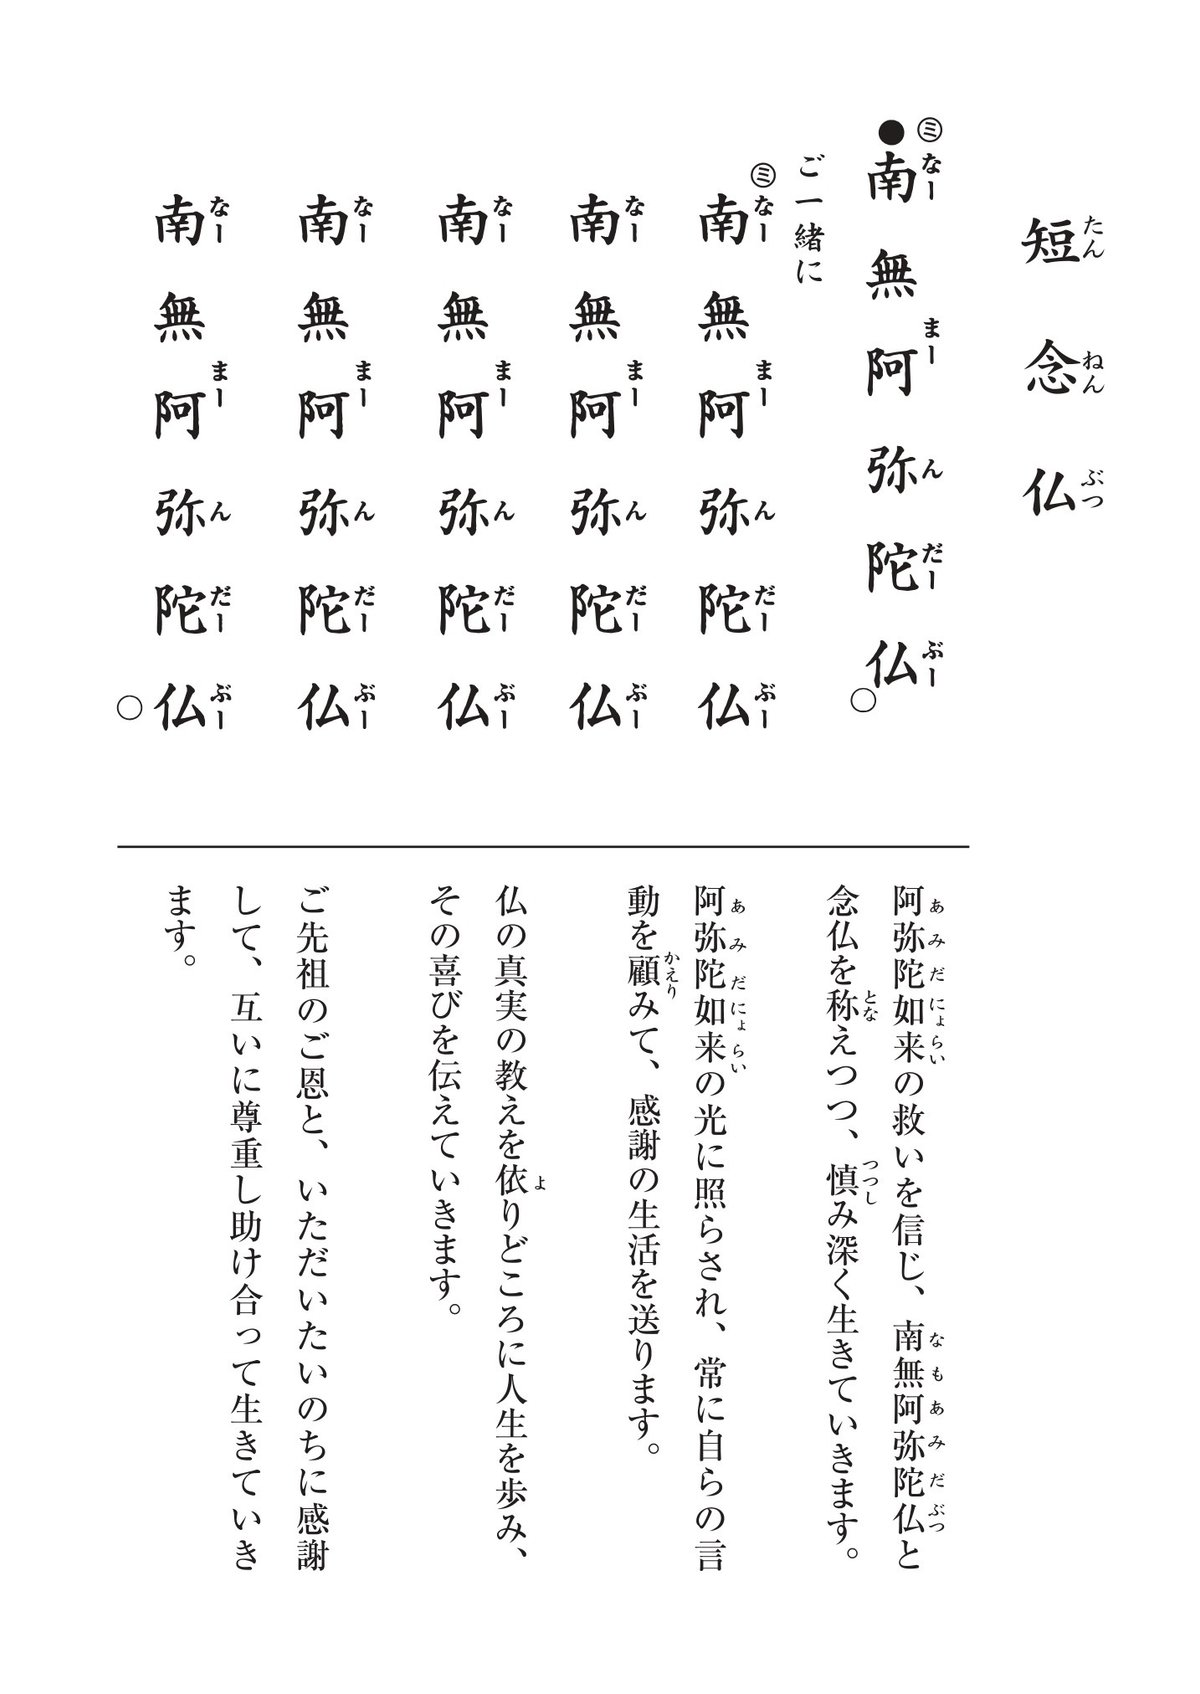 短念仏
たんねんぶつ
㋯
●南無阿弥陀仏○
なーまーんだーぶー
ご一緒に
㋯
南無阿弥陀仏
なーまーんだーぶー
南無阿弥陀仏
なーまーんだーぶー
南無阿弥陀仏
なーまーんだーぶー
南無阿弥陀仏
なーまーんだーぶー
南無阿弥陀仏○
なーまーんだーぶー
阿弥陀如来の救いを信じ、南無阿弥陀仏と
あみだにょらい なもあみだぶつ
念仏を称えつつ、慎み深く生きていきます。
とな つつし
阿弥陀如来の光に照らされ、常に自らの言
あみだにょらい
動を顧みて、感謝の生活を送ります。
かえり
仏の真実の教えを依りどころに人生を歩み、
よ
その喜びを伝えていきます。
ご先祖のご恩と、いただいたいのちに感謝
して、互いに尊重し助け合って生きていき
ます。